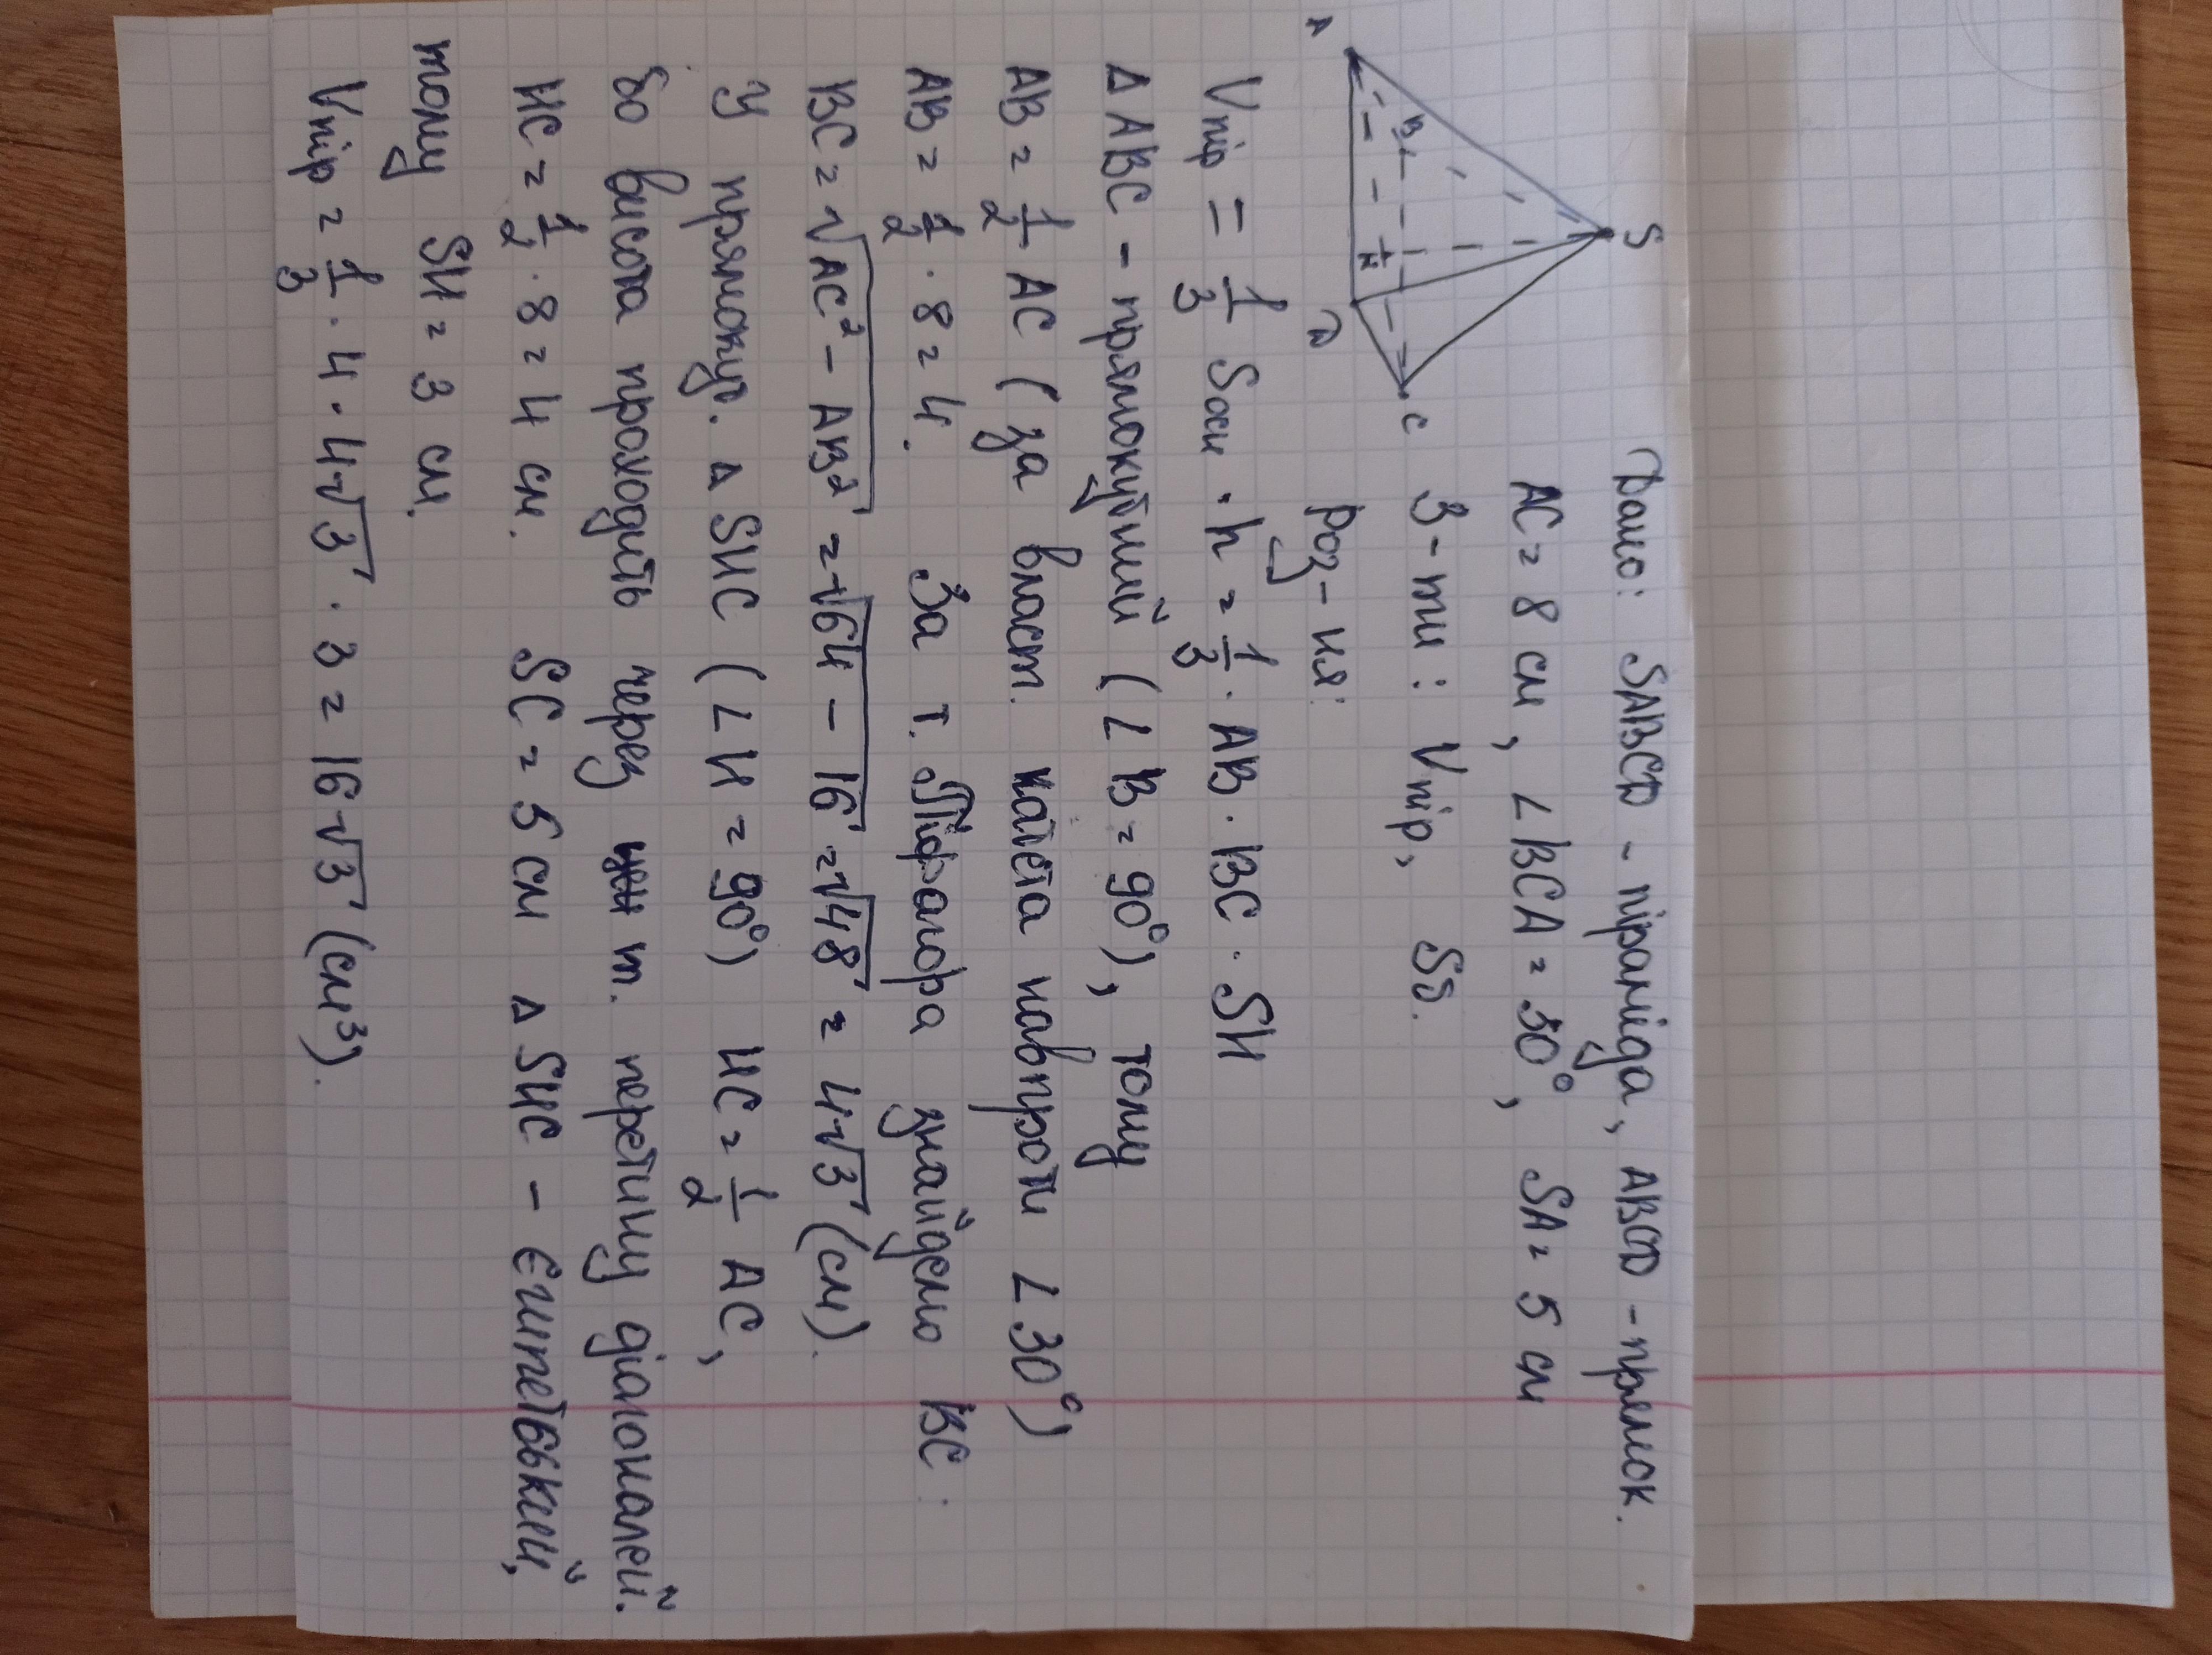 S
A
B
H
D
C
Дано: SABCD - піраміда, ABCD - прямок.
AC = 8 см, ∠BCA = 30°, SA = 5 см
З-ти: Vпір, Sб.
Роз-ня:
Vпір = 1/3 Sосн · h = 1/3 · AB · BC · SH
Δ ABC - прямокутний (∠B = 90°), тому
AB = 1/2 AC (за власт. катета навпроти ∠30°)
AB = 1/2 · 8 = 4. За т. Піфагора знайдемо BC:
BC = √(AC² - AB²) = √(64 - 16) = √48 = 4√3 (см).
У прямокут. Δ SHC (∠H = 90°) HC = 1/2 AC,
бо висота проходить через т. перетину діагоналей.
HC = 1/2 · 8 = 4 см. SC = 5 см Δ SHC - єгипетський,
тому SH = 3 см.
Vпір = 1/3 · 4 · 4√3 · 3 = 16√3 (см³).